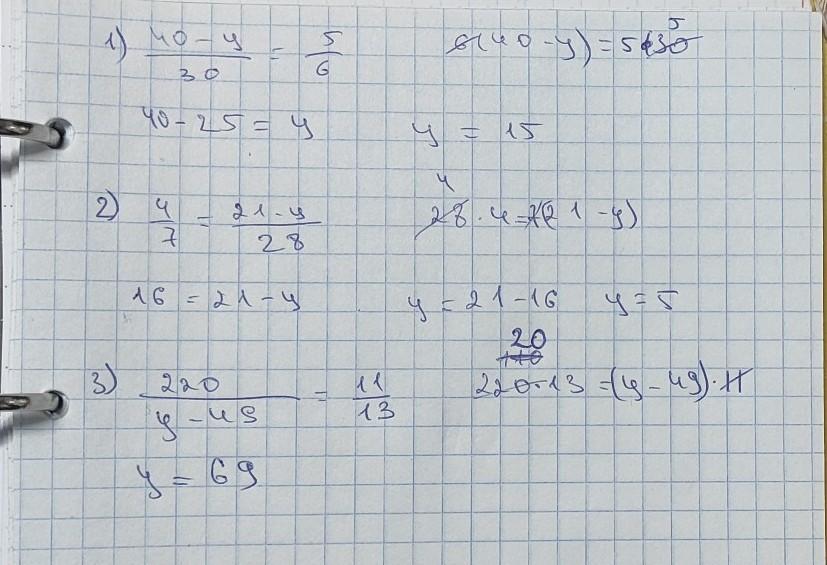 1) (40 - y)/30 = 5/6    6(40 - y) = 5·30 5
40 - 25 = y    y = 15
2) 4/7 = (21 - y)/28    28 · 4 = 7(21 - y) 4
16 = 21 - y    y = 21 - 16    y = 5
3) 220/(y - 49) = 11/13    220 · 13 = (y - 49) · 11 110 20
y = 69